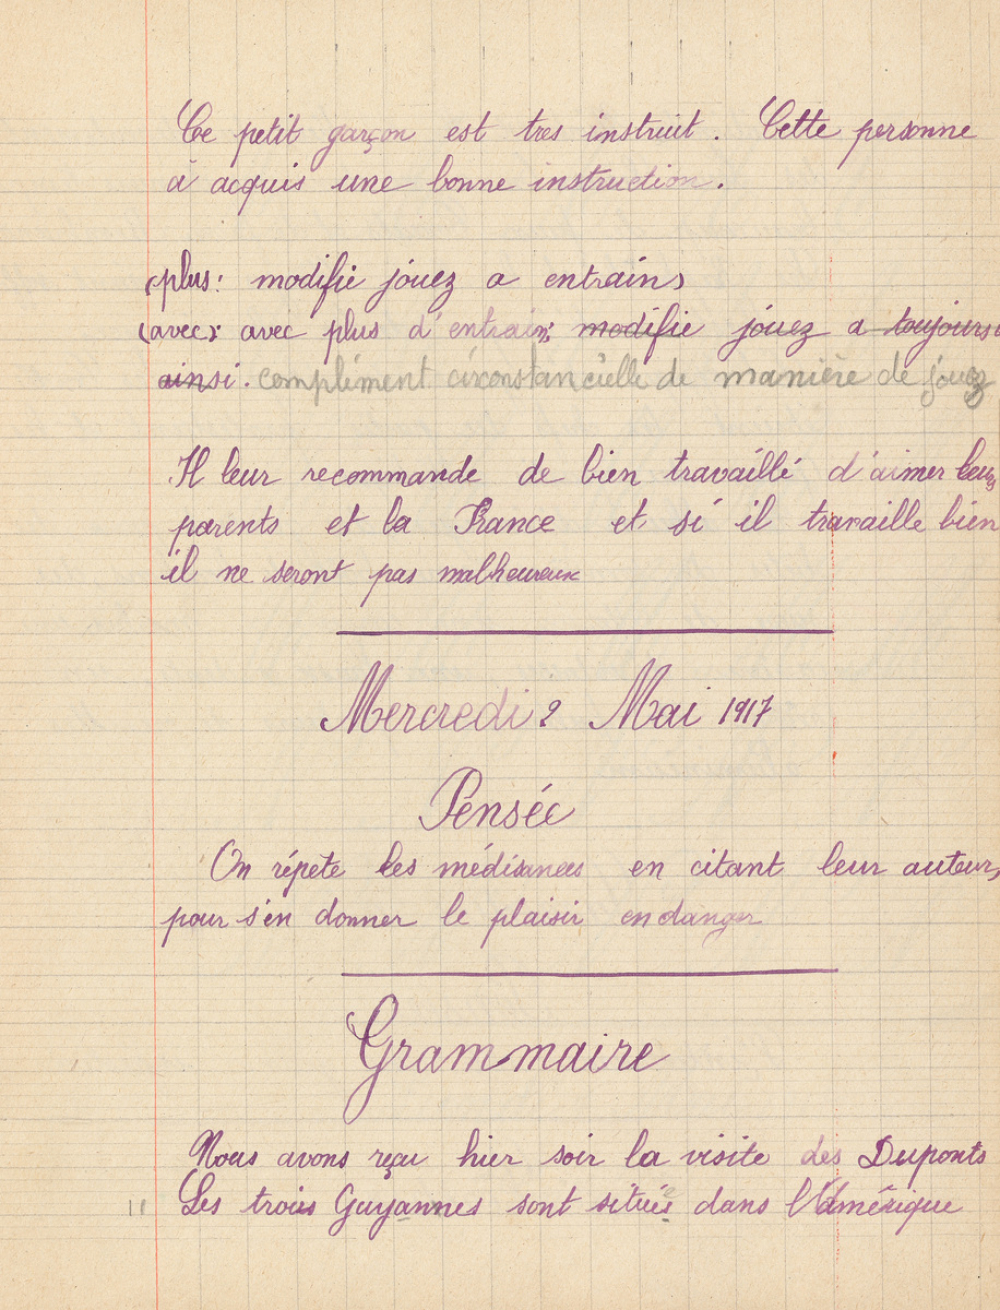 Ce petit garçon est tres instruit. Cette personne
à acquis une bonne instruction.
(plus: modifie jouez a entrain)
(avec): avec plus d'entrain; modifie jouez a toujours
ainsi. complément circonstancielle de manière de jouez
Il leur recommande de bien travaillé d'aimer leurs
parents et la France et si il travaille bien
il ne seront pas malheureux
Mercredi 2 Mai 1917
Pensée
On répete les médisances en citant leur auteur,
pour s'en donner le plaisir en danger
Grammaire
Nous avons reçu hier soir la visite des Duponts
11 Les trois Guyannes sont située dans l'Amérique